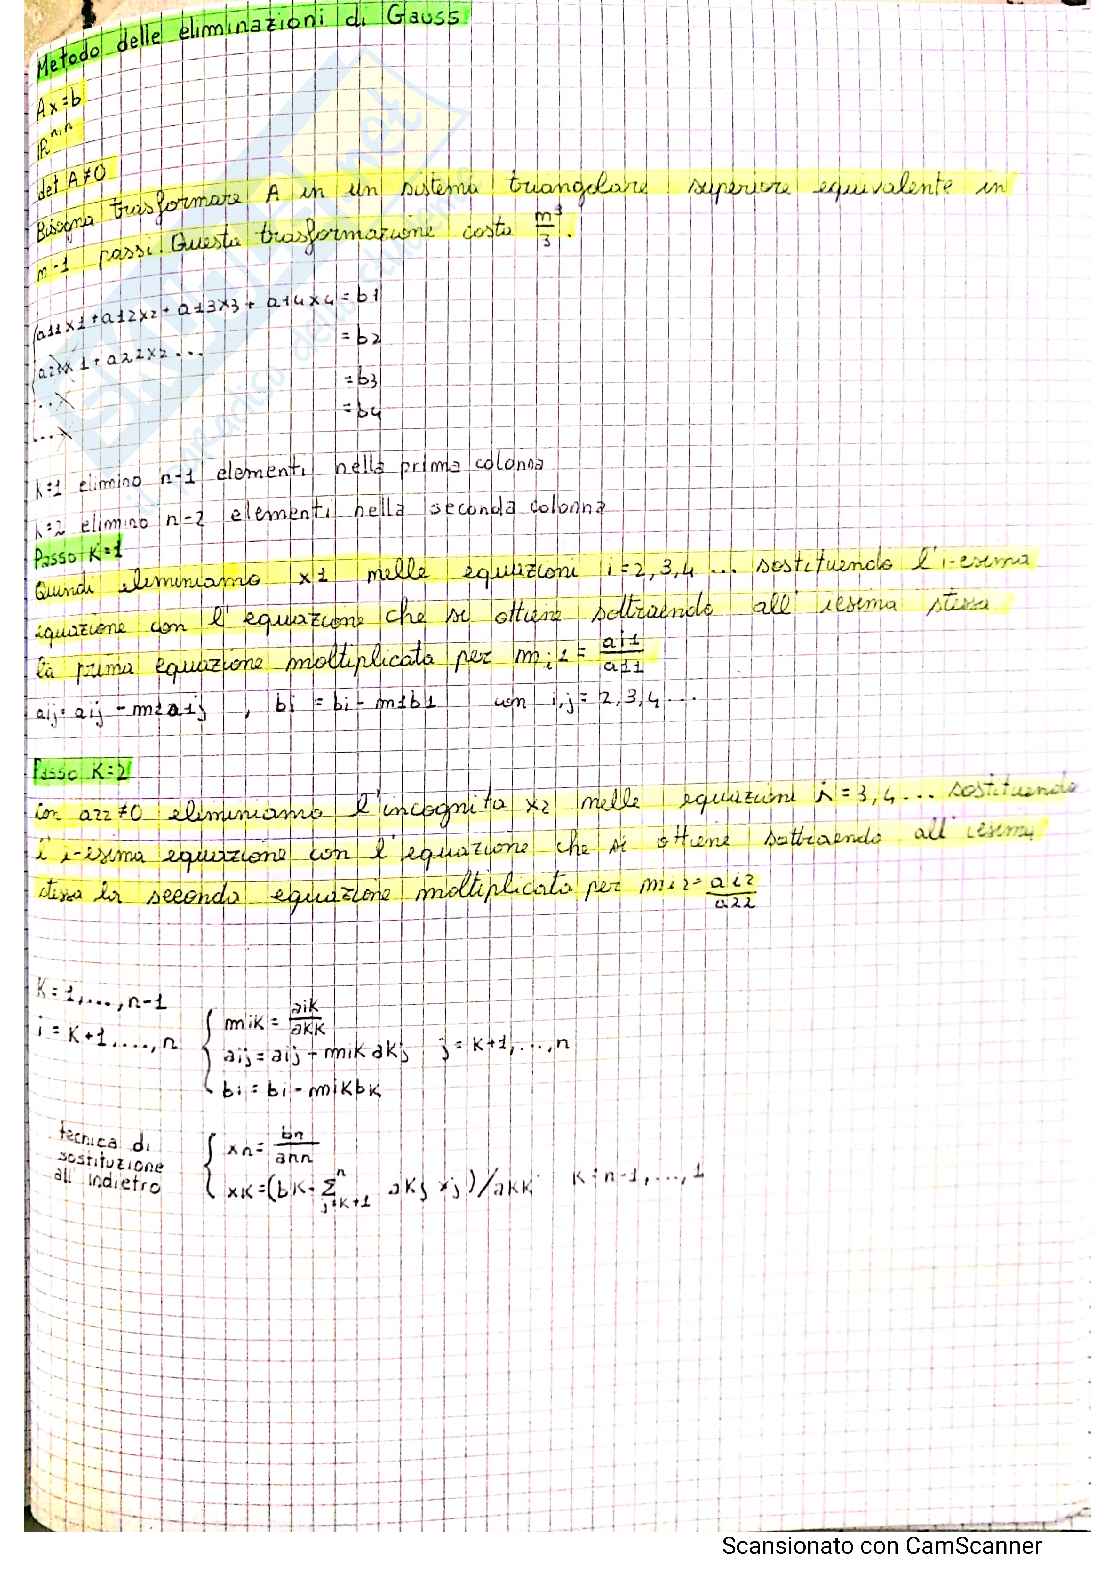 Metodo delle eliminazioni di Gauss
Ax=b
ℝ^n,n
det A≠0
Bisogna trasformare A in un sistema triangolare superiore equivalente in
n-1 passi. Questa trasformazione costa n³/3.
a11x1+a12x2+a13x3+a14x4=b1
a21x1+a22x2... =b2
... =b3
... =b4
k=1 elimino n-1 elementi nella prima colonna
k=2 elimino n-2 elementi nella seconda colonna
Passo K=1
Quindi eliminiamo x1 nelle equazioni i=2,3,4... sostituendo l'i-esima
equazione con l'equazione che si ottiene sottraendo all'iesima stessa
la prima equazione moltiplicata per mi1=ai1/a11
aij=aij-m1a1j, bi=bi-m1b1 con i,j=2,3,4...
Passo K=2
Con a22≠0 eliminiamo l'incognita x2 nelle equazioni i=3,4... sostituendo
l'i-esima equazione con l'equazione che si ottiene sottraendo all'iesima
stessa la seconda equazione moltiplicata per mi2=ai2/a22
K=1,...,n-1
i=K+1,...,n
mik=aik/akk
aij=aij-mikakj j=K+1,...,n
bi=bi-mikbk
tecnica di
sostituzione
all'indietro
xn=bn/ann
xk=(bk-Σ_{j=K+1}^n akj xj)/akk K=n-1,...,1
Scansionato con CamScanner